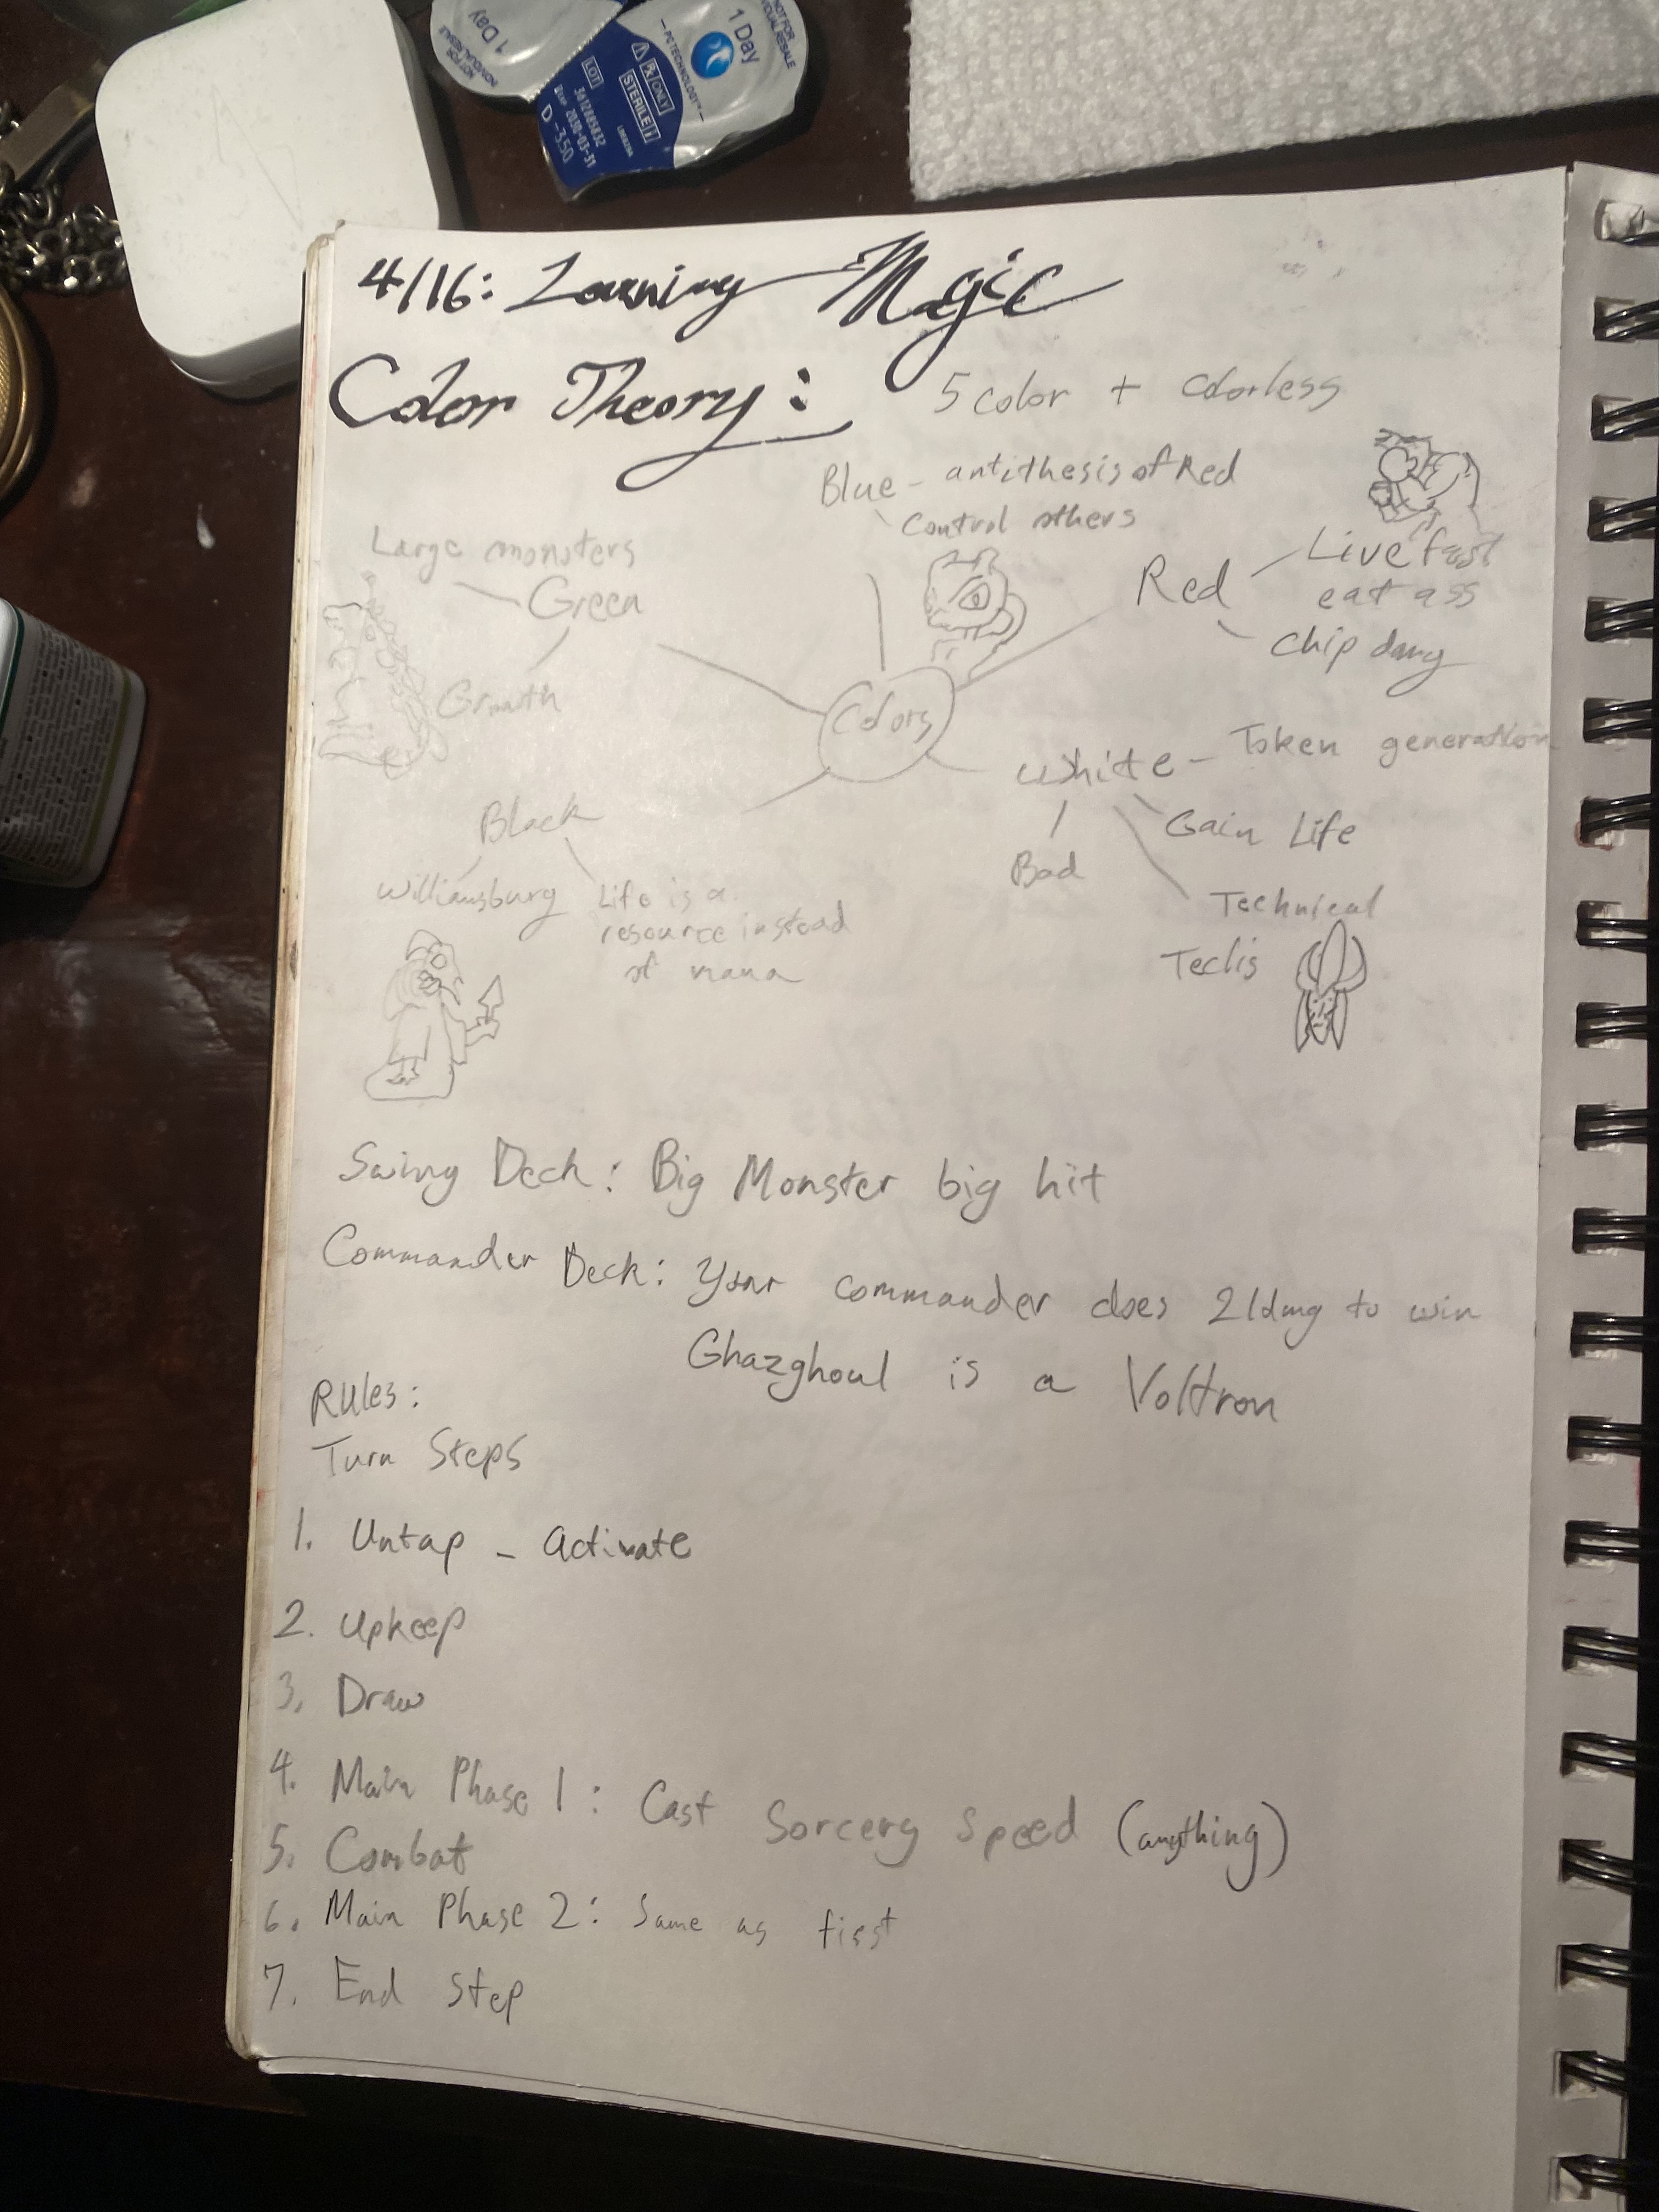 1 Day
NOT FOR
INDIVIDUAL RESALE
1 Day
NOT FOR
INDIVIDUAL RESALE
-PC TECHNOLOGY™-
Rx ONLY
STERILE
LOT
3612885832
EXP 2030-03-31
D -3.50
4/16: Learning Magic
Color Theory:
5 color + colorless
Blue - antithesis of Red
Control others
Large monsters
Green
Growth
Red
Live fast
eat ass
Chip dmg
Colors
White - Token generation
Bad
Gain Life
Technical
Teclis
Black
Williamsburg
Life is a
resource instead
of mana
Swing Deck: Big Monster big hit
Commander Deck: Your commander does 21dmg to win
Ghazghoul is a Voltron
Rules:
Turn Steps
1. Untap - Activate
2. Upkeep
3. Draw
4. Main Phase 1: Cast Sorcery Speed (anything)
5. Combat
6. Main Phase 2: Same as first
7. End Step